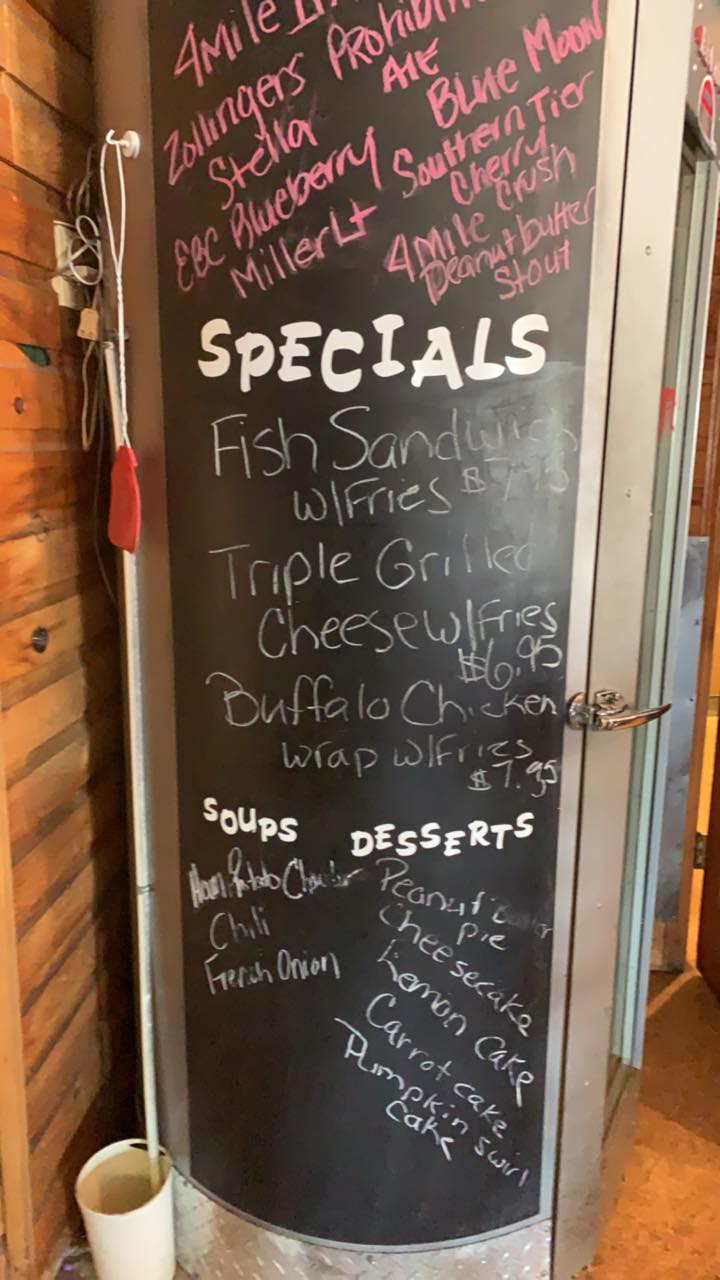 4Mile
Zollingers Prohibition
Ale
Stella
Blue Moon
EBC Blueberry
Southern Tier
Cherry
Crush
Miller Lt
4Mile
Peanut butter
Stout
SPECIALS
Fish Sandwich
w/Fries $7.95
Triple Grilled
Cheese w/Fries
$6.95
Buffalo Chicken
wrap w/Fries
$7.95
SOUPS
Ham Potato Chowder
Chili
French Onion
DESSERTS
Peanut Butter
Pie
Cheesecake
Lemon Cake
Carrot cake
Pumpkin swirl
Cake